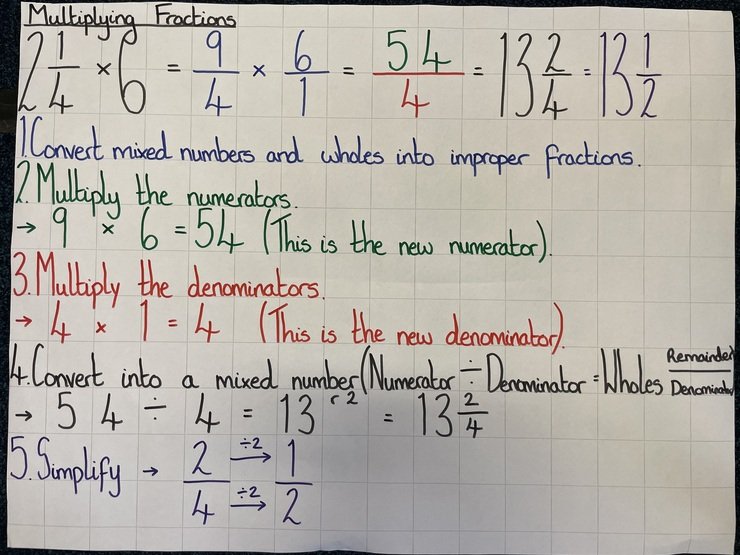 Multiplying Fractions
2 1/4 × 6 = 9/4 × 6/1 = 54/4 = 13 2/4 = 13 1/2
1. Convert mixed numbers and wholes into improper fractions.
2. Multiply the numerators.
→ 9 × 6 = 54 (This is the new numerator).
3. Multiply the denominators.
→ 4 × 1 = 4 (This is the new denominator).
4. Convert into a mixed number (Numerator ÷ Denominator = Wholes Remainder/Denominator
→ 54 ÷ 4 = 13 r 2 = 13 2/4
5. Simplify → 2/4 ÷2→ ÷2→ 1/2